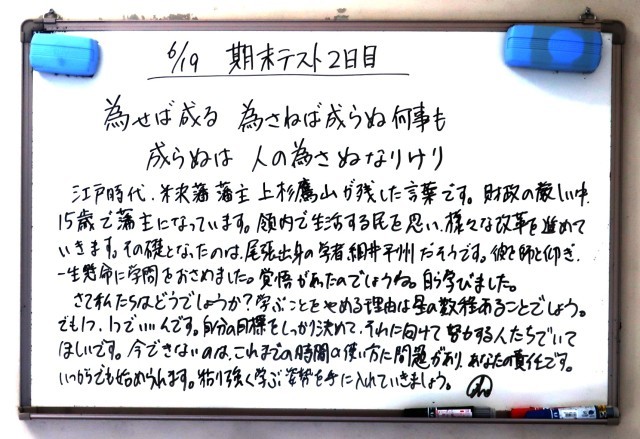 6/19 期末テスト2日目
為せば成る 為さねば成らぬ何事も
成らぬは 人の為さぬなりけり
江戸時代、米沢藩藩主 上杉鷹山が残した言葉です。財政の厳しい中、
15歳で藩主になっています。領内で生活する民を思い、様々な改革を進めて
いきます。その礎となったのは、尾張出身の学者、細井平州だそうです。彼を師と仰ぎ、
一生懸命に学問をおさめました。覚悟があったのでしょうね。自ら学びました。
さて私たちはどうでしょうか?学ぶことをやめる理由は星の数程あることでしょう。
でも1つ、1つでいいんです。自分の目標をしっかり決めて、それに向けて努力する人たちでいて
ほしいです。今できないのは、これまでの時間の使い方に問題があり、あなたの責任です。
いつからでも始められます。粘り強く学ぶ姿勢を手に入れていきましょう。